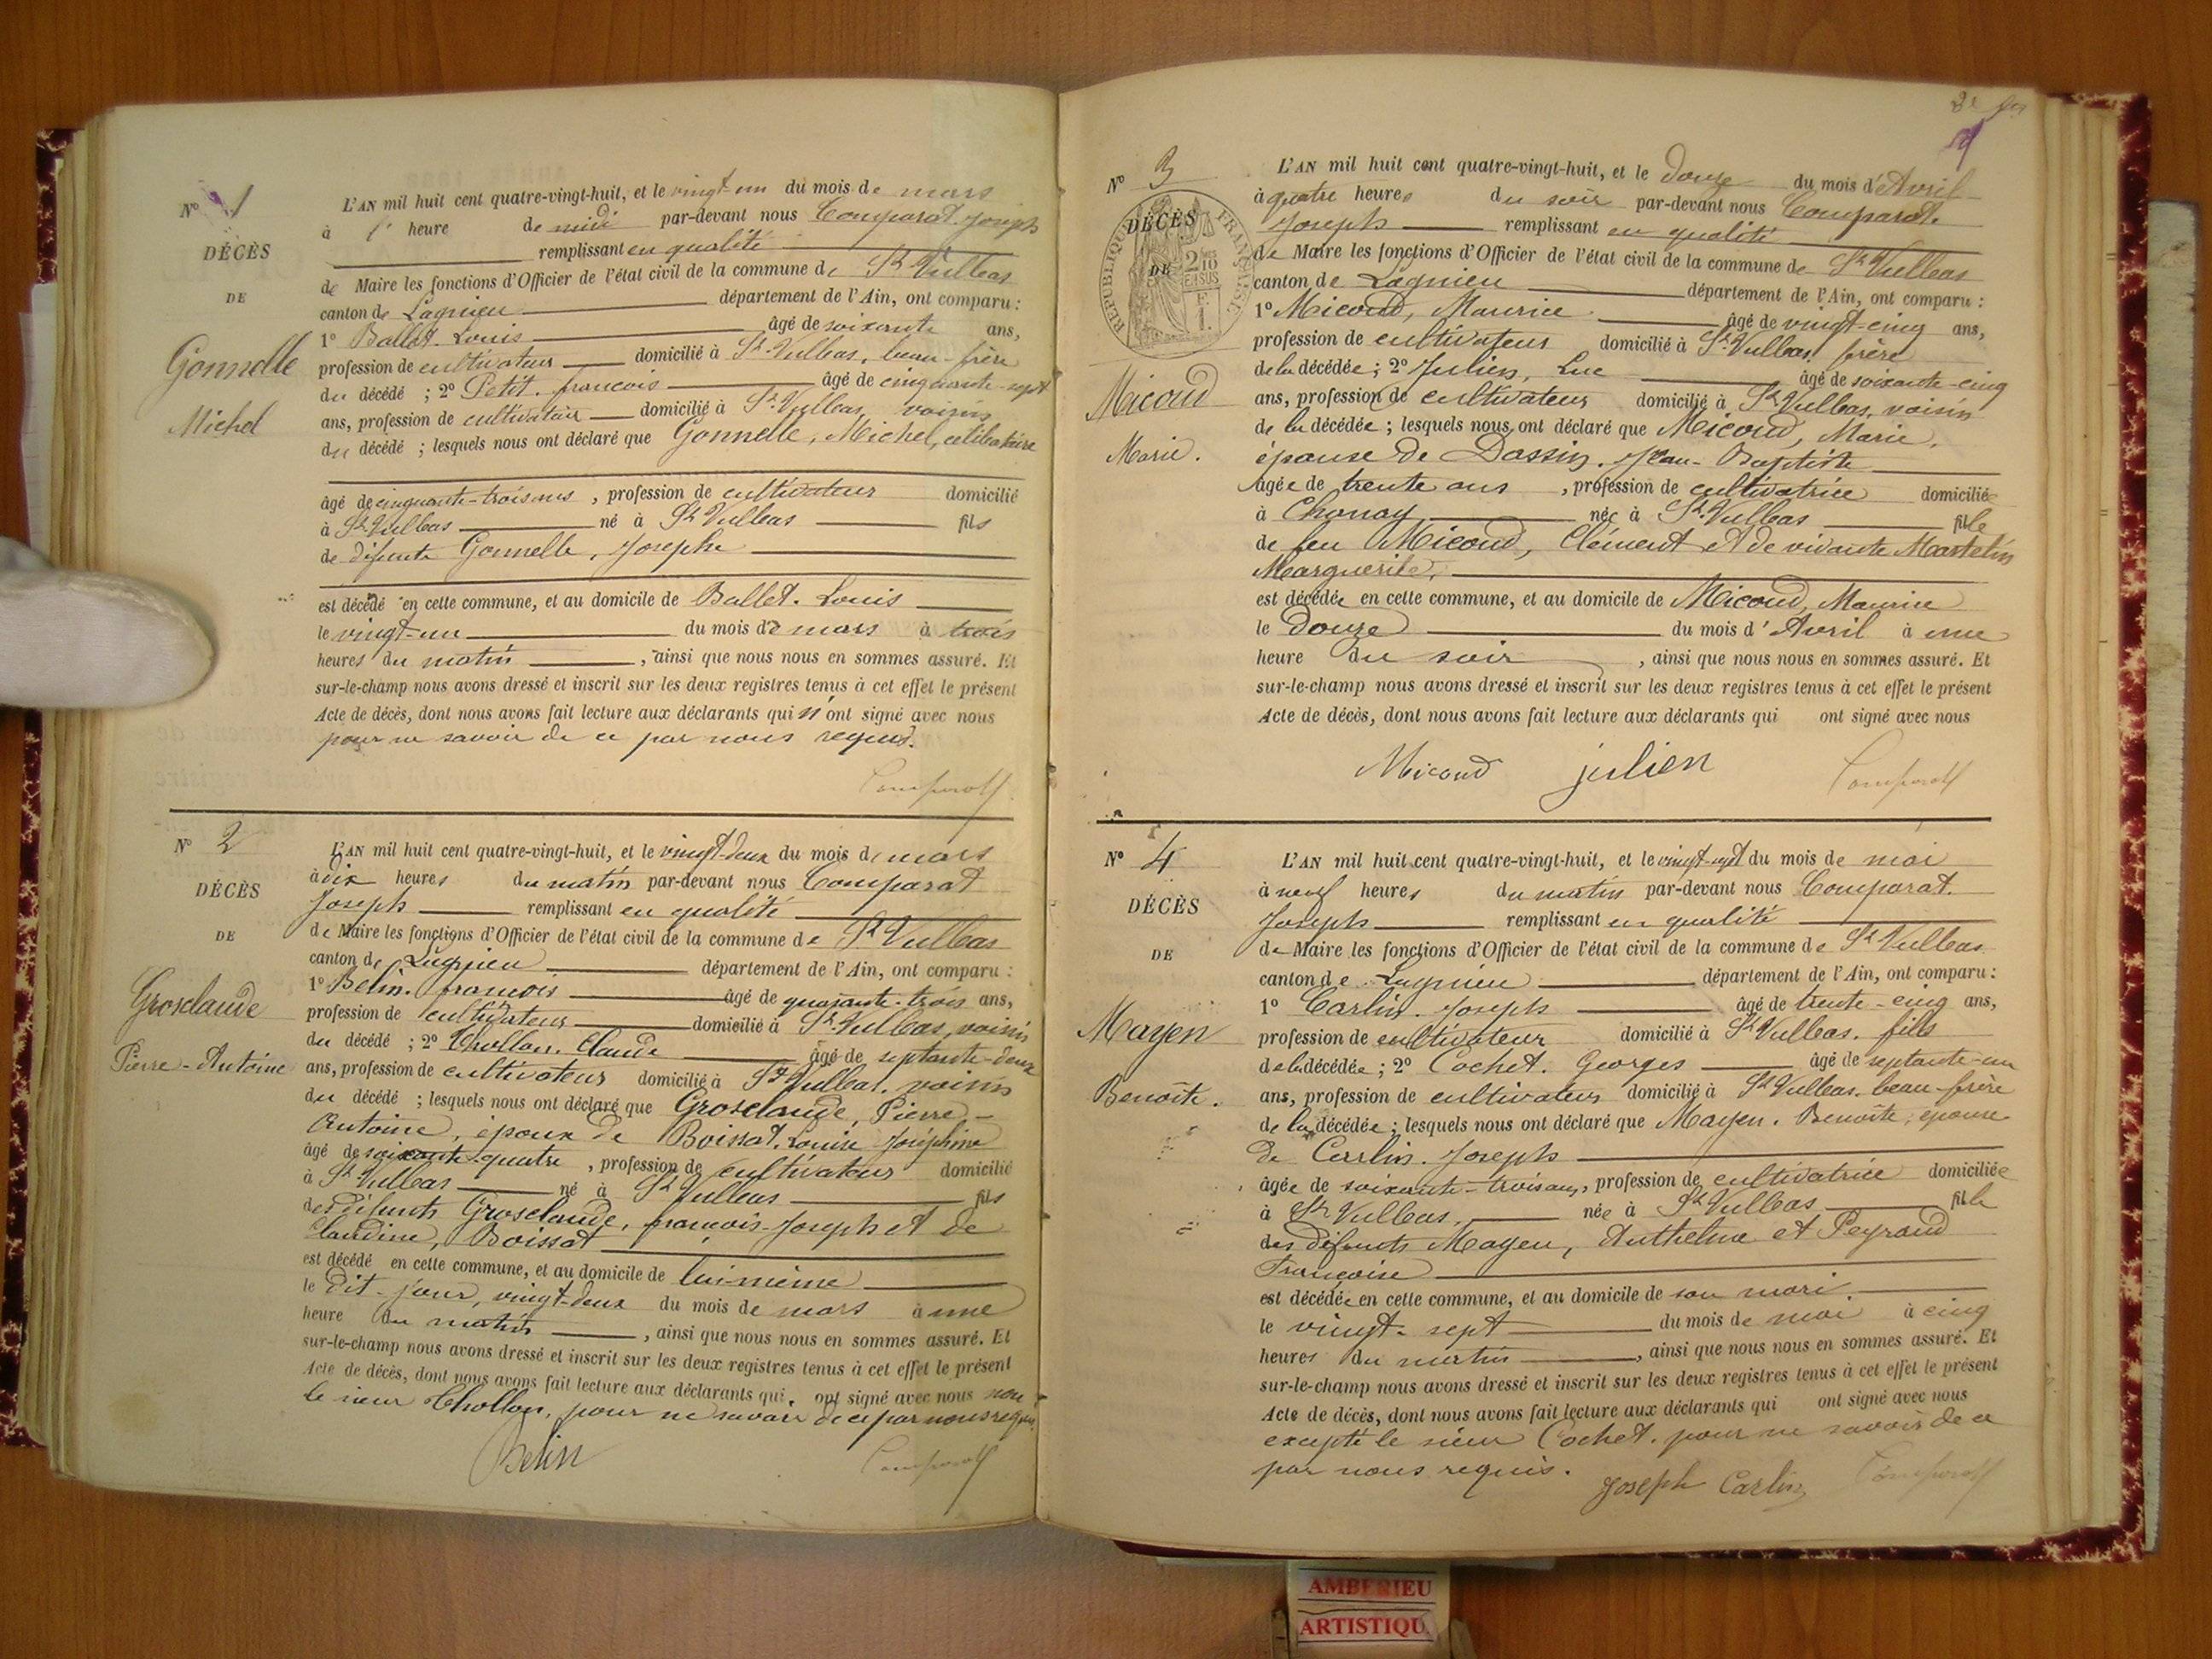 N° 1
DÉCÈS
DE
Gonnelle
Michel
L'AN mil huit cent quatre-vingt-huit, et le vingt-un du mois de mars
à 1 heure de midi par-devant nous Comparat Joseph
remplissant en qualité
de Maire les fonctions d'Officier de l'état civil de la commune de St Vulbas
canton de Lagnieu département de l'Ain, ont comparu :
1° Ballet Louis âgé de soixante ans,
profession de cultivateur domicilié à St Vulbas, beau-frère
du décédé ; 2° Petit francois âgé de cinquante-sept
ans, profession de cultivateur domicilié à St Vulbas, voisin
du décédé ; lesquels nous ont déclaré que Gonnelle, Michel, célibataire
âgé de cinquante-trois ans, profession de cultivateur domicilié
à St Vulbas né à St Vulbas fils
de défunte Gonnelle, Josephe
est décédé en cette commune, et au domicile de Ballet. Louis
le vingt-un du mois de mars à trois
heures du matin, ainsi que nous nous en sommes assuré. Et
sur-le-champ nous avons dressé et inscrit sur les deux registres tenus à cet effet le présent
Acte de décès, dont nous avons fait lecture aux déclarants qui n'ont signé avec nous
pour ne savoir de ce par nous requis.
Comparat
N° 2
DÉCÈS
DE
Grosclaude
Pierre-Antoine
L'AN mil huit cent quatre-vingt-huit, et le vingt-deux du mois de mars
à dix heures du matin par-devant nous Comparat
Joseph remplissant en qualité
de Maire les fonctions d'Officier de l'état civil de la commune de St Vulbas
canton de Lagnieu département de l'Ain, ont comparu :
1° Belin. françois âgé de quarante-trois ans,
profession de cultivateur domicilié à St Vulbas, voisin
du décédé ; 2° Chollon. Claude âgé de septante-deux
ans, profession de cultivateur domicilié à St Vulbas, voisin
du décédé ; lesquels nous ont déclaré que Grosclaude, Pierre-
Antoine, époux de Boissat. Louise Joséphine
âgé de soixante-quatre, profession de cultivateur domicilié
à St Vulbas né à St Vulbas fils
des défunts Grosclaude, françois-Joseph et de
Claudine, Boissat
est décédé en cette commune, et au domicile de lui-même
le dit-jour, vingt-deux du mois de mars à une
heure du matin, ainsi que nous nous en sommes assuré. Et
sur-le-champ nous avons dressé et inscrit sur les deux registres tenus à cet effet le présent
Acte de décès, dont nous avons fait lecture aux déclarants qui ont signé avec nous non
le sieur Chollon, pour ne savoir de ce par nous requis
Belin Comparat
N° 3
DÉCÈS
DE
RÉPUBLIQUE FRANÇAISE
Micoud
Marie.
L'AN mil huit cent quatre-vingt-huit, et le douze du mois d'Avril
à quatre heures du soir par-devant nous Comparat.
Joseph remplissant en qualité
de Maire les fonctions d'Officier de l'état civil de la commune de St Vulbas
canton de Lagnieu département de l'Ain, ont comparu :
1° Micoud, Maurice âgé de vingt-cinq ans,
profession de cultivateur domicilié à St Vulbas, frère
de la décédée ; 2° Julien, Luc âgé de soixante-cinq
ans, profession de cultivateur domicilié à St Vulbas, voisin
de la décédée ; lesquels nous ont déclaré que Micoud, Marie,
épouse de Dassin. Jean-Baptiste
âgée de trente ans, profession de cultivatrice domiciliée
à Chonay née à St Vulbas fille
de feu Micoud, Clément et de vivante Martelin
Marguerite,
est décédée en cette commune, et au domicile de Micoud, Maurice
le douze du mois d'Avril à une
heure du soir, ainsi que nous nous en sommes assuré. Et
sur-le-champ nous avons dressé et inscrit sur les deux registres tenus à cet effet le présent
Acte de décès, dont nous avons fait lecture aux déclarants qui ont signé avec nous
Micoud julien Comparat
N° 4
DÉCÈS
DE
Mayen
Benoîte.
L'AN mil huit cent quatre-vingt-huit, et le vingt-sept du mois de mai
à neuf heures du matin par-devant nous Comparat.
Joseph remplissant en qualité
de Maire les fonctions d'Officier de l'état civil de la commune de St Vulbas
canton de Lagnieu département de l'Ain, ont comparu :
1° Carlin. Joseph âgé de trente-cinq ans,
profession de cultivateur domicilié à St Vulbas. fils
de la décédée ; 2° Cochet. Georges âgé de septante-un
ans, profession de cultivateur domicilié à St Vulbas. beau-frère
de la décédée ; lesquels nous ont déclaré que Mayen. Benoîte, épouse
de Carlin. Joseph
âgée de soixante-trois ans, profession de cultivatrice domiciliée
à St Vulbas, née à St Vulbas fille
des défunts Mayen, Anthelme et Peyraud
Françoise
est décédée en cette commune, et au domicile de son mari.
le vingt-sept du mois de mai à cinq
heures du matin, ainsi que nous nous en sommes assuré. Et
sur-le-champ nous avons dressé et inscrit sur les deux registres tenus à cet effet le présent
Acte de décès, dont nous avons fait lecture aux déclarants qui ont signé avec nous
excepté le sieur Cochet. pour ne savoir de ce
par nous requis.
Joseph Carlin Comparat
AMBERIEU
ARTISTIQU